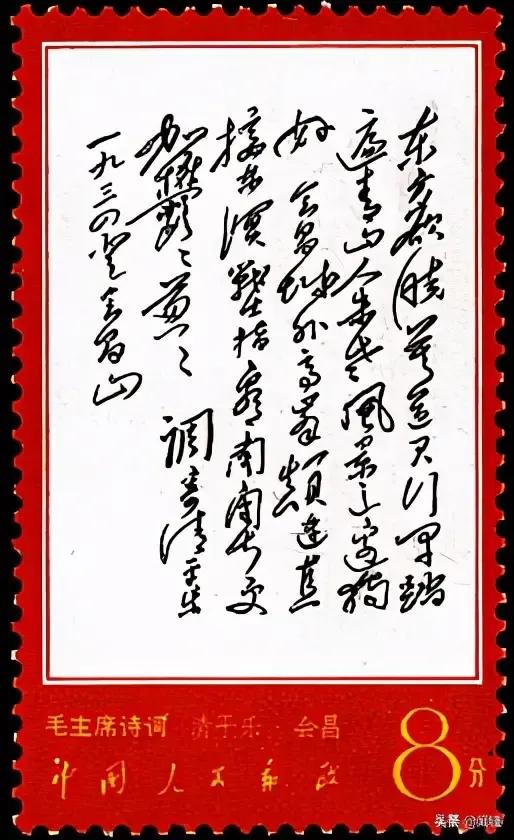 东方欲晓莫道君行早踏
遍青山人未老風景这边独
好 会昌城外高峯颠连直
接东溟戰士指看南粤更
加鬱々葱々 调寄清平乐
一九三四登会昌山
毛主席诗词 清平乐 会昌
中国人民邮政
8分
头条